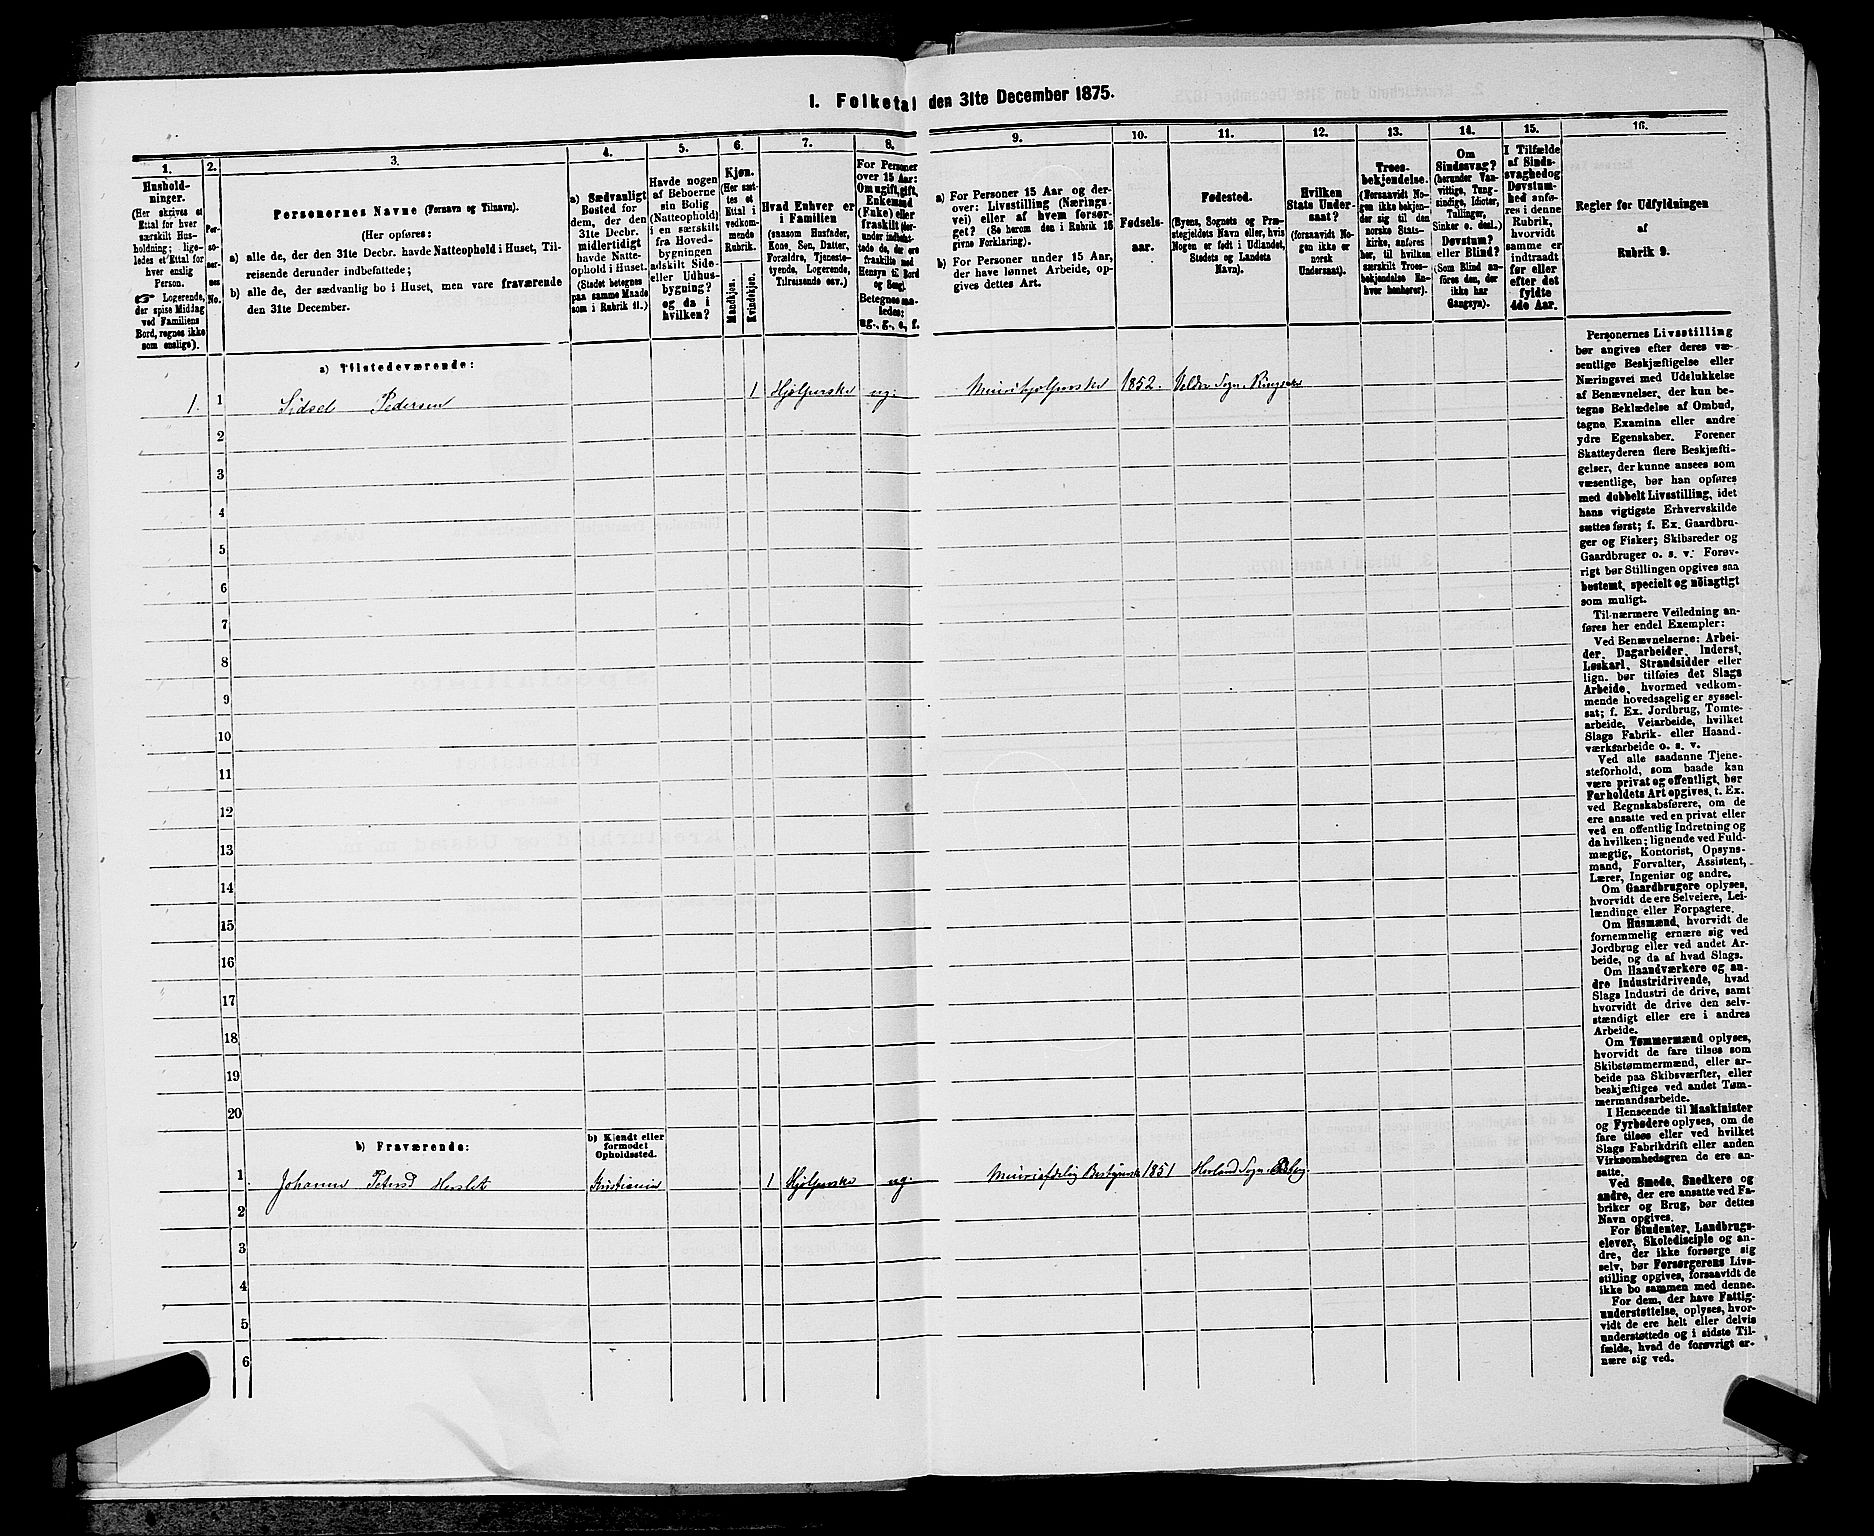 I. Folketal den 31te December 1875.
1.
Hushold-
ninger.
(Her skrives et
Ettal for hver
særskilt Hus-
holdning; lige-
ledes et Ettal for
hver enslig
Person.
☞ Logerende,
der spise Middag
ved Familiens
Bord, regnes ikke
som enslige).
2.
Per-
so-
ner-
nes
No.
3.
Personernes Navne (Fornavn og Tilnavn).
(Her opføres:
a) alle de, der den 31te Decbr. havde Natteophold i Huset, Til-
reisende derunder indbefattede;
b) alle de, der sædvanlig bo i Huset, men vare fraværende
den 31te December.
4.
a) Sædvanligt
Bosted for
dem, der den
31te Decbr.
midlertidigt
havde Natte-
ophold i Huset.
(Stedet betegnes
paa samme Maade
som i Rubrik 11.)
5.
Havde nogen
af Beboerne
sin Bolig
(Natteophold)
i en særskilt
fra Hoved-
bygningen
adskilt Side-
eller Udhus-
bygning?
og da i
hvilken?
6.
Kjøn.
(Her sæt-
tes et
Ettal i
vedkom-
mende
Rubrik.
Mandkjøn.
Kvindekjøn.
7.
Hvad Enhver er
i Familien
(saasom Husfader,
Kone, Søn, Datter,
Forældre, Tjeneste-
tyende, Logerende,
Tilreisende osv.)
8.
For Personer
over 15 Aar:
Om ugift, gift,
Enkemand
(Enke) eller
fraskilt
Betegnes saa-
ledes:
ug., g., e., f.
9.
a) For Personer 15 Aar og der-
over: Livsstilling (Nærings-
vei) eller af hvem forsør-
get? (Se herom den i Rubrik 16
givne Forklaring).
b) For Personer under 15 Aar,
der have lønnet Arbeide, op-
gives dettes Art.
10.
Fødsels-
aar.
11.
Fødested.
(Byens, Sognets og Præ-
stegjeldets Navn eller, hvis
Nogen er født i Udlandet,
Stedets og Landets
Navn).
12.
Hvilken
Stats Under-
saat?
(forsaavidt No-
gen ikke er
norsk
Undersaat).
13.
Troes-
bekjendelse.
(Forsaavidt No-
gen ikke bekjen-
der sig til den
norske Stats-
kirke, anføres
her, til hvilken
særskilt Troes-
bekjendelse En-
hver henhører).
14.
Om
Sindssvag?
(herunder Van-
vittige, Tung-
sindige, Idioter,
Tullinger,
Sinker o. desl.)
Døvstum?
eller Blind?
(Som Blind an-
føres den, der
ikke har
Gangsyn).
15.
I Tilfælde
af Sinds-
svaghed og
Døvstum-
hed anfø-
res i denne
Rubrik,
hvorvidt
samme er
indtraadt
før eller
efter det
fyldte
4de Aar.
16.
Regler for Udfyldningen
af
Rubrik 9.
a) Tilstedeværende:
1. 1 Sidsel Pedersen 1 Hjelperske ug. Meierihjelperske 1852. Veldre Sogn Ringsaker
2
3
4
5
6
7
8
9
10
11
12
13
14
15
16
17
18
19
20
b) Fraværende:
b) Kjendt eller
formodet
Opholdssted.
1 Johanne Petersd Herslet Kristiania 1 Hjelperske ug. 1851 Sogn
2
3
4
5
6
Personernes Livsstilling
bør angives efter deres væ-
sentlige Beskjæftigelse eller
Næringsvei med Udelukkelse
af Benævnelser, der kun be-
tegne Beklædelse af Ombud,
tagne Examina eller andre
ydre Egenskaber. Forener
Skatteyderen flere Beskjæfti-
gelser, der kunne ansees som
væsentlige, bør han opføres
med dobbelt Livsstilling, idet
hans vigtigste Erhvervskilde
sættes først; f. Ex. Gaardbru-
ger og Fisker; Skibsreder og
Gaardbruger o. s. v. Forøv-
rigt bør Stillingen opgives saa
bestemt, specielt og nöiagtigt
som muligt.
Til nærmere Veiledning an-
føres her endel Exempler:
Ved Benævnelserne: Arbei-
der, Dagarbeider, Inderst,
Løskarl, Strandsidder eller
lign. bør tilføies det Slags
Arbeide, hvormed vedkom-
mende hovedsagelig er syssel-
sat; f. Ex. Jordbrug, Tomte-
arbeide, Veiarbeide, hvilket
Slags Fabrik- eller Haand-
værksarbeide o. s. v.
Ved alle saadanne Tjene-
steforhold, som baade kan
være privat og offentligt, bør
Forholdets Art opgives, t. Ex.
ved Regnskabsførere, om de
ere ansatte ved en privat eller
ved en offentlig Indretning og
da hvilken; lignende ved Fuld-
mægtig, Kontorist, Opsyns-
mand, Forvalter, Assistent,
Lærer, Ingeniør og andre.
Om Gaardbrugere oplyses,
hvorvidt de ere Selveiere, Lei-
lændinge eller Forpagtere.
Om Husmænd, hvorvidt de
fornemmelig ernære sig ved
Jordbrug eller ved andet Ar-
beide, og da af hvad Slags.
Om Haandværkere og an-
dre Industridrivende, hvad
Slags Industri de drive, samt
hvorvidt de drive den selv-
stændigt eller ere i andres
Arbeide.
Om Tømmermænd oplyses,
hvorvidt de fare tilsøs som
Skibstømmermænd, eller ar-
beide paa Skibsværfter, eller
beskjæftiges ved andet Tøm-
mermandsarbeide.
I Henseende til Maskinister
og Fyrbødere oplyses, om de
fare tilsøs eller ved hvilket
Slags Fabrikdrift eller anden
Virksomhedsgren de ere an-
satte.
Ved Smede, Snedkere og
andre, der ere ansatte ved Fa-
briker og Brug, bør dettes
Navn opgives.
For Studenter, Landbrugs-
elever, Skoledisciple og an-
dre, der ikke forsørge sig
selv, bør Forsørgerens Livs-
stilling opgives, forsaavidt de
ikke bo sammen med denne.
For dem, der have Fattig-
understøttelse, oplyses, hvor-
vidt de ere helt eller delvis
understøttede og i sidste Til-
fælde, hvad de forøvrigt er-
nære sig ved.